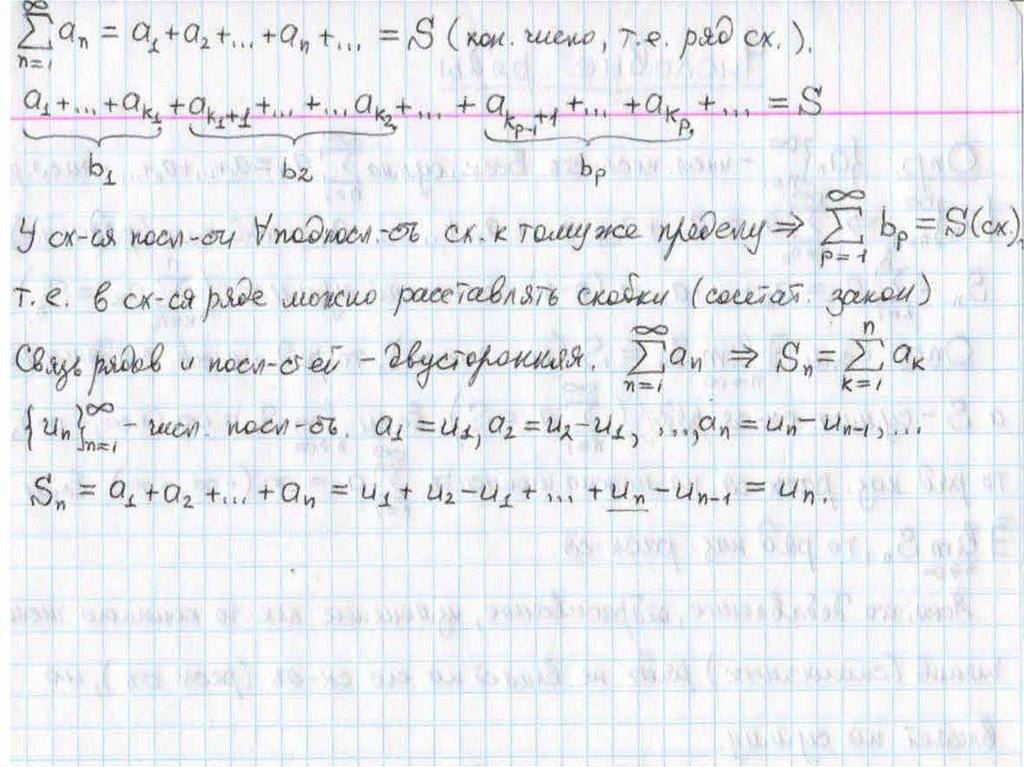 ∞∑n=1 an = a1 + a2 + ... + an + ... = S (кон. число, т.е. ряд сх.).
a1 + ... + ak1 + ak1+1 + ... + ... ak2 + ... + akp-1+1 + ... + akp + ... = S
b1 b2 bp
У сх-ся посл-сти ∀ подпосл.-сть сх. к тому же пределу ⇒ ∞∑p=1 bp = S (сх.),
т.е. в сх-ся ряде можно расставлять скобки (сочетат. закон)
Связь рядов и посл-стей - двусторонняя. ∞∑n=1 an ⇒ Sn = n∑k=1 ak
{un}∞n=1 - числ. посл-сть. a1 = u1, a2 = u2 - u1, ..., an = un - un-1, ...
Sn = a1 + a2 + ... + an = u1 + u2 - u1 + ... + un - un-1 = un.